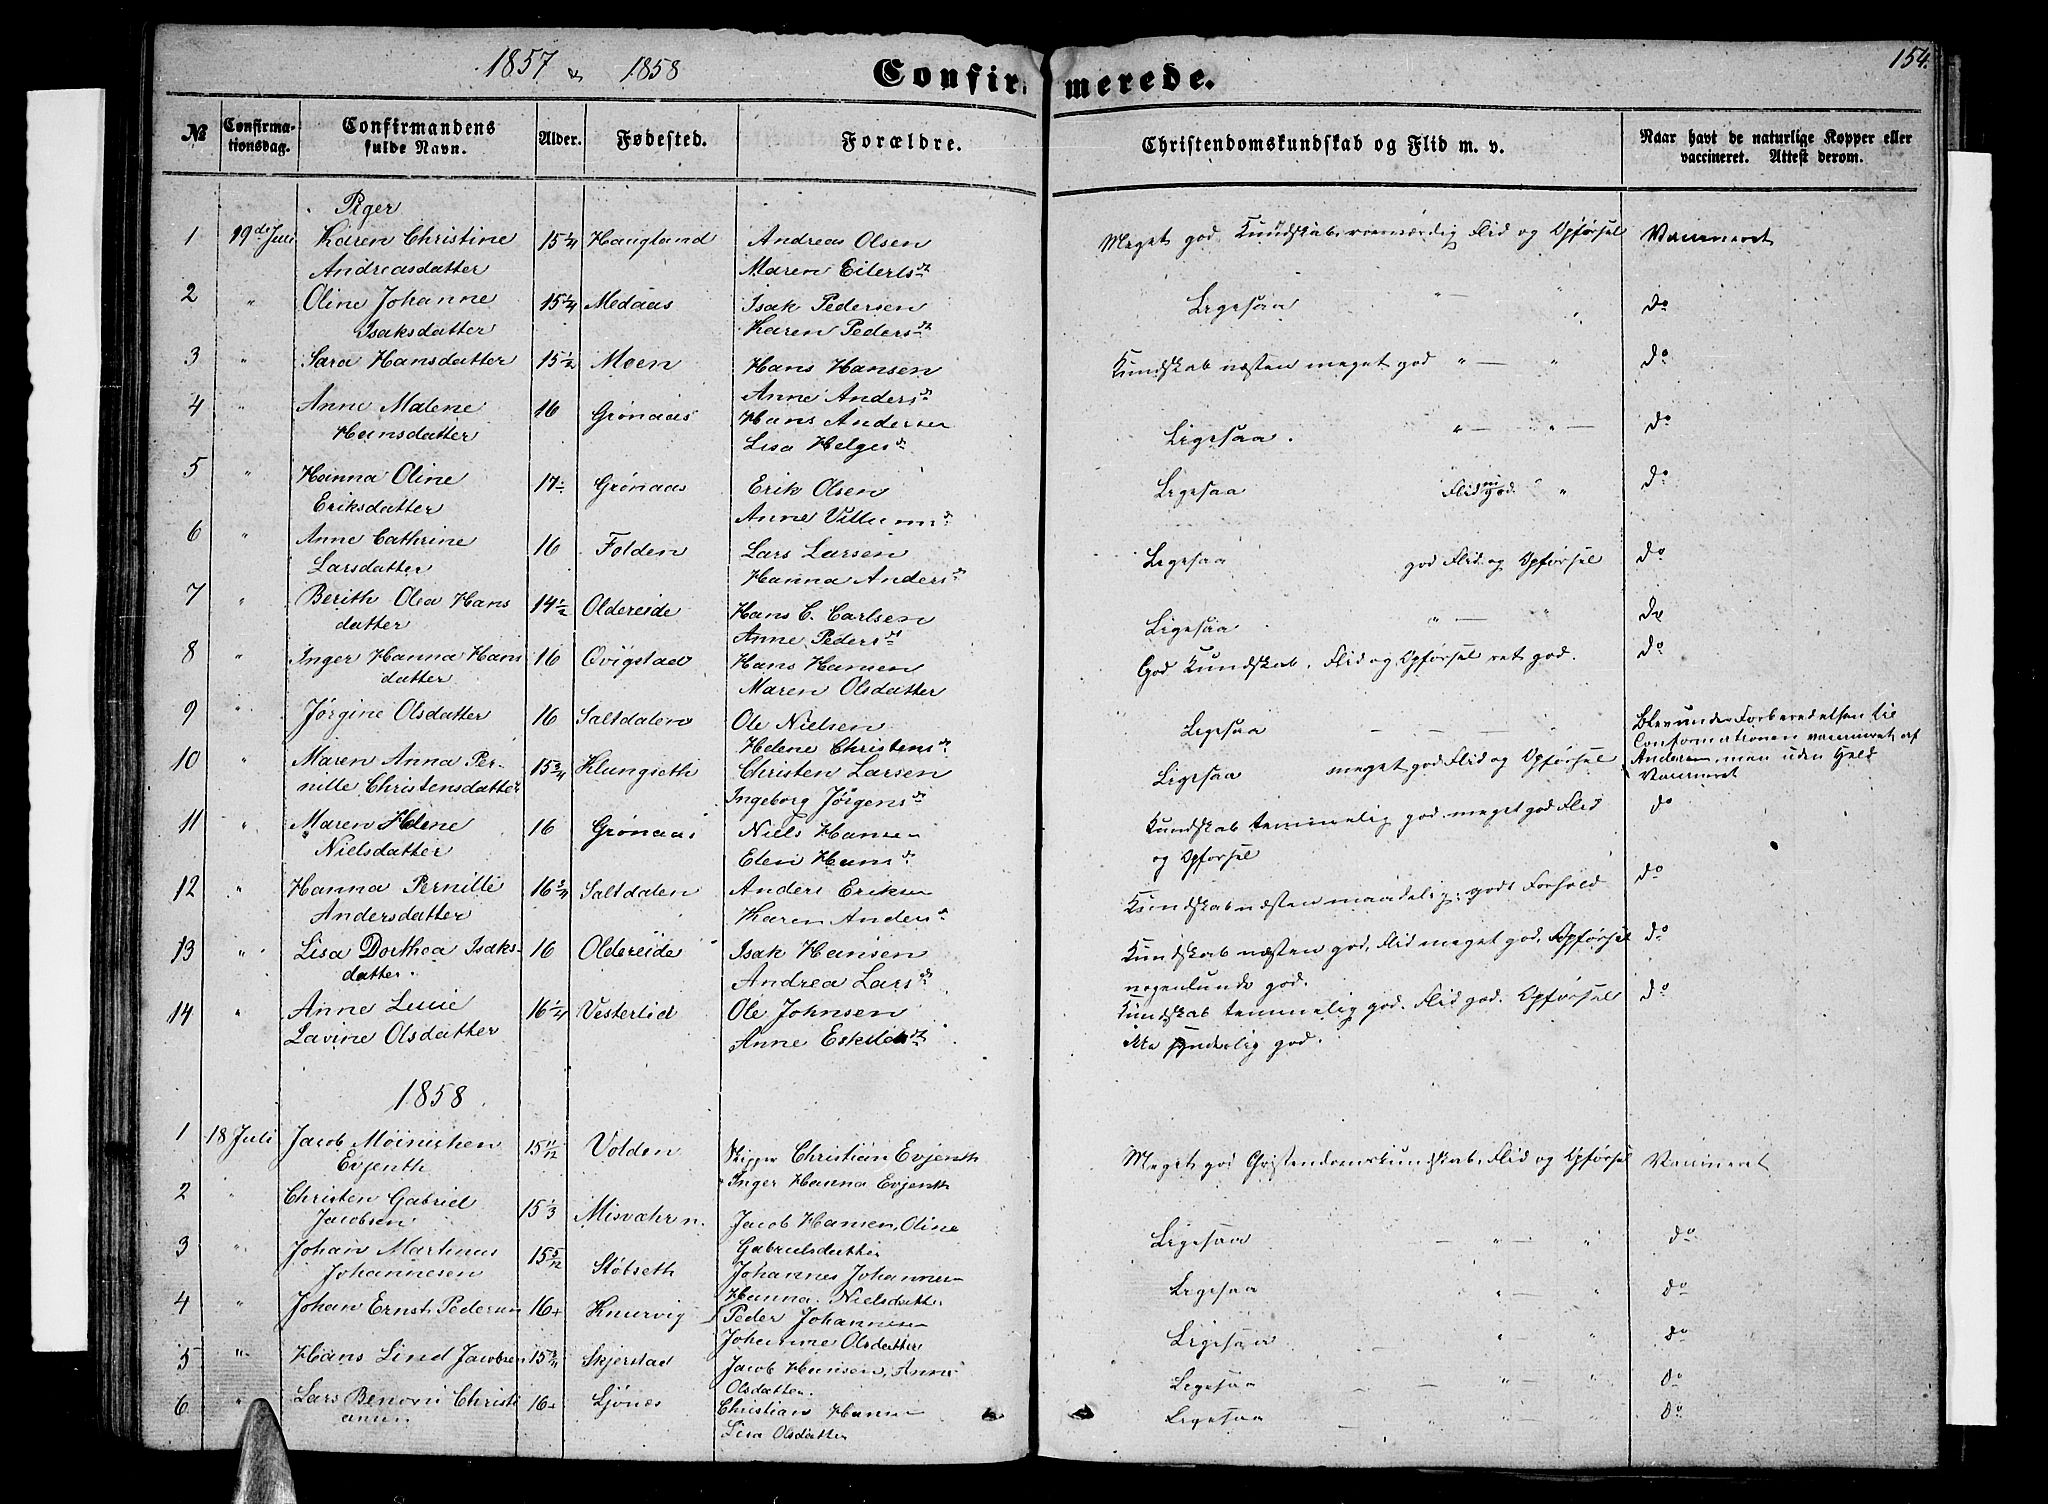 1857 & 1858 Confirmerede. 154.
№ Confirma-tionsdag. Confirmandens fulde Navn. Alder. Fødested. Forældre. Christendomskundskab og Flid m. v. Naar havt de naturlige Kopper eller vaccineret. Attest derom.
Piger
1 19de Juli Karen Christine 15 1/4 Haugland Andreas Olsen Meget god Kundskab, Flid og Opførsel Vaccineret
Andreasdatter Maren Eilertsd
2 " Oline Johanne 15 1/4 Medaas Isak Pedersen Ligesaa " — " do
Isaksdatter Karen Pedersdt
3 " Sara Hansdatter 15 1/2 Moen Hans Hansen Kundskab næsten meget god " — " do
Anne Andersd
4 " Anne Malene 16 Grønaas Hans Andersen Ligesaa. " — " — do
Hansdatter Lisa Helgesd
5 " Hanna Oline 17 Grønaas Erik Olsen Ligesaa Flid god " do
Eriksdatter Anne
6 " Anne Cathrine 16 Folden Lars Larsen Ligesaa god Flid og Opførsel do
Larsdatter Hanna Andersd
7 " Berith Olea Hans 14 1/2 Oldereide Hans C. Carlsen Ligesaa " — " do
datter Anne Pedersdt
8 " Inger Hanna Hans 16 Qvigstad Hans Hansen God Kundskab, Flid og Opførsel ret god. do
datter Maren Olsdatter
9 " Jørgine Olsdatter 16 Saltdalen Ole Nielsen Ligesaa — — — " Blev under Forberedelsen til
Helene Christensd Confirmationen vaccineret af
10 " Maren Anna Per- 15 3/4 Klungseth Christen Larsen Ligesaa meget god Flid og Opførsel Anderen, men uden Held
nille Christensdatter Ingeborg Jørgensd Vaccineret
11 " Maren Helene 16 Grønaas Niels Hansen Kundskab temmelig god meget god Flid do
Nielsdatter Elen Hansd og Opførsel
12 " Hanna Pernille 16 3/4 Saltdalen Anders Eriksen Kundskab næsten maadelig; godt Forhold do
Andersdatter Karen Andersd
13 " Lisa Dorthea Isaks- 16 Oldereide Isak Hansen Kundskab næsten god, Flid meget god, Opførsel do
datter. Andrea Larsdt nogenlunde god.
14 " Anne Lucie 16 1/4 Vesterlid Ole Johnsen Kundskab temmelig god. Flid god. Opførsel do
Lavine Olsdatter Anne ikke synderlig god.
1858
1 18 Juli Jacob Møinichen 15 11/12 Volden Skipper Christian Evjenth Meget god Christendomskundskab, Flid og Opførsel Vaccineret
Evjenth Inger Hanna Evjenth
2 " Christen Gabriel 15 1/3 Misværn. Jacob Hansen, Oline Ligesaa — " — " do
Jacobsen Gabrielsdatter
3 " Johan Martinus 15 5/12 Støbseth Johannes Johannesen Ligesaa " " do
Johannesen Hanna Nielsdatter
4 " Johan Ernst Pedersen 16 Knurvig Peder Johannesen Ligesaa " " do
Johanne Olsdatter
5 " Hans Lind Jacobsen 15 3/4 Skjerstad Jacob Hansen, Anne Ligesaa — — " — " do
Olsdatter.
6 " Lars Benoni Christi 16 Ljønes Christian Hansen Ligesaa — " " do
ansen Lisa Olsdatter